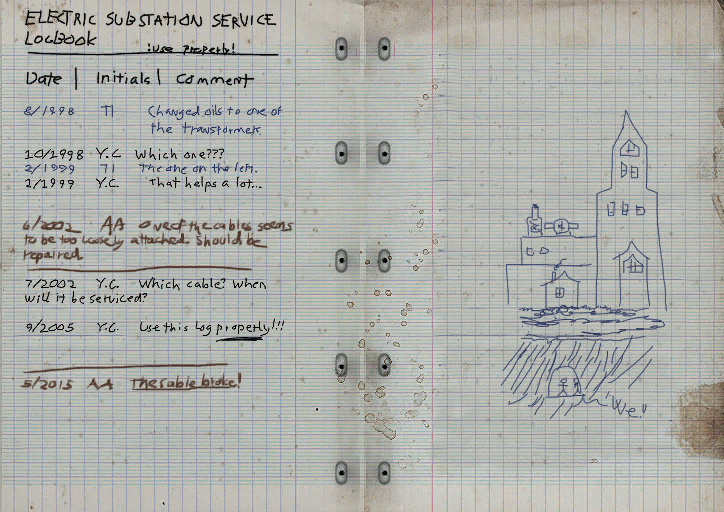 ELECTRIC SUBSTATION SERVICE
LOGBOOK
!use properly!
Date | Initials | Comment
8/1998 TI Changed oils to one of
the transformers.
10/1998 Y.C. Which one???
2/1999 TI The one on the left.
2/1999 Y.C. That helps a lot...
6/2002 AA One of the cables seems
to be too loosely attached. Should be
repaired
7/2002 Y.C. Which cable? When
will it be serviced?
9/2005 Y.C. Use this log properly!!!
5/2015 AA The cable broke!
"We!"